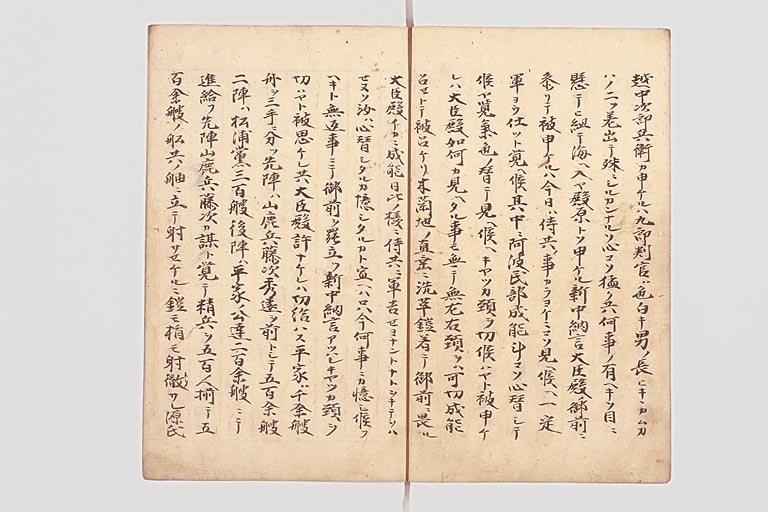 越中次郎兵衛カ申ケルハ九郎判官ハ色白キ男ノ長ヒキミカムカ
ハノ二ツ差出テ殊ニシルカンナルソ心コソ猛クトモ何事ノ有ヘキソ目ニ
懸テハ組テ海ヘ入ヤ殿原トソ申ケル新中納言大臣殿ノ御前ニ
参リテ被申ケルハ今日ハ侍共ノ事カラヨケニコソ見ヘ候ヘ一定
軍ヨウ仕ツト覚ヘ候其ノ中ニ阿波民部成能斗コソ心替シテ
候ヤ覧氣色ノ替テ見ヘ候ヘキヤツカ頭ヲ切候ハヤト被申ケ
レハ大臣殿如何カ見ヘタル事モ無テ無左右頭ヲハ可切成能
召セトテ被召ケリ木蘭地ノ直垂ニ洗革鎧着テ御前ニ畏ル
大臣殿イカニ成能日比ノ様ニ侍共ニ軍吉セヨナントナトシキテツハ
セヌソ汝ハ心替シタルカ憶シタルカト宣ヘハ只今何事ニカ憶シ候フ
ヘキト無返事ニテ御前ヲ罷立ツ新中納言アツハレキヤツカ頭ヲ
切ハヤト被思ケレ共大臣殿許ナケレハ切給ハス平家ハ千余艘
舟ヲ三手ニ分ツ先陣ハ山鹿兵藤次秀遠ヲ前トシテ五百余艘
二陣ハ松浦黨三百余艘後陣ハ平家ノ公達二百余艘ニテ
進給フ先陣山鹿兵藤次カ謀ト覚テ精兵ヲ五百人揃テ五
百余艘ノ舩共ノ舳ニ立テ射サセケルニ鎧モ楯モ射徹サレ源氏